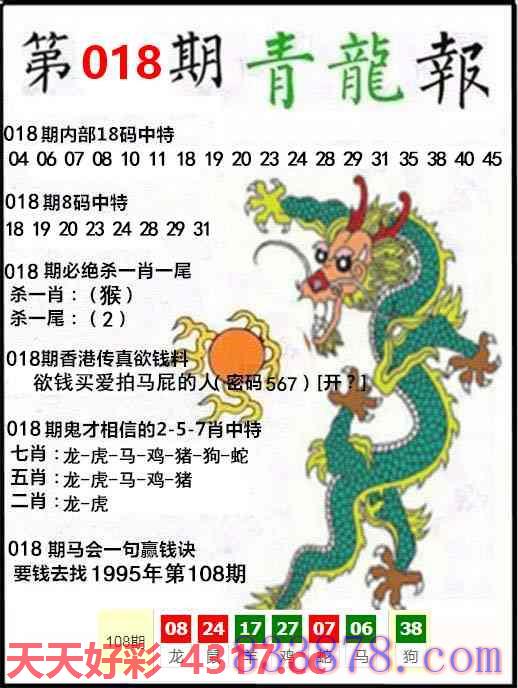 第018期 青龍報
018期内部18码中特
04 06 07 08 10 11 18 19 20 23 24 28 29 31 35 38 40 45
018期8码中特
18 19 20 23 24 28 29 31
018期必绝杀一肖一尾
杀一肖：（猴）
杀一尾：（2）
018期香港传真欲钱料
欲钱买爱拍马屁的人（密码567）[开？]
018期鬼才相信的2-5-7肖中特
七肖：龙-虎-马-鸡-猪-狗-蛇
五肖：龙-虎-马-鸡-猪
二肖：龙-虎
018期马会一句赢钱诀
要钱去找1995年第108期
108期 08 24 17 27 07 06 38
龙 鼠 羊 鸡 蛇 马 狗
天天好彩 4317.cc